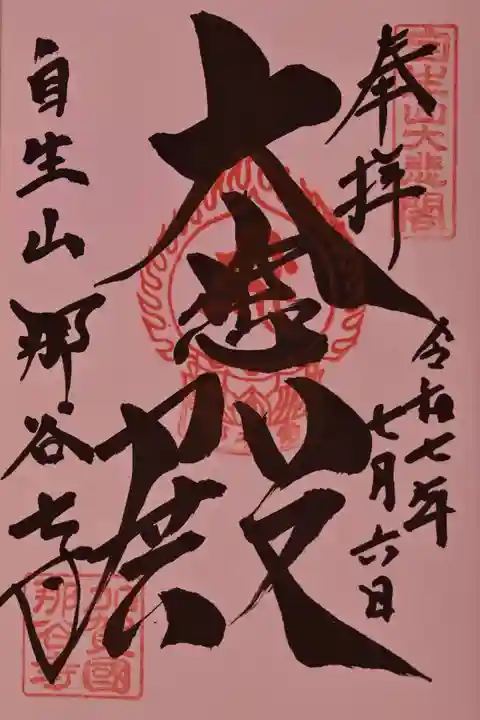 奉拝
令和七年
七月六日
大悲殿
自生山 那谷寺
自生山大悲閣
加賀國
那谷寺